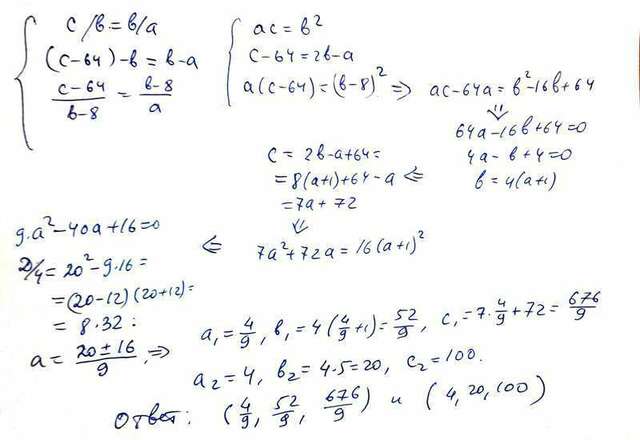 c/b = b/a
(c-64)-b = b-a
(c-64)/(b-8) = (b-8)/a
ac = b²
c-64 = 2b-a
a(c-64) = (b-8)² => ac-64a = b²-16b+64
64a-16b+64=0
4a-b+4=0
b=4(a+1)
c = 2b-a+64=
= 8(a+1)+64-a <=
= 7a+72
7a²+72a=16(a+1)²
<=
9·a²-40a+16=0
D/4 = 20²-9·16=
=(20-12)(20+12)=
= 8·32 :
a = (20±16)/9 =>
a₁ = 4/9, b₁ = 4(4/9+1) = 52/9, c₁ = 7·4/9+72 = 676/9
a₂ = 4, b₂ = 4·5=20, c₂ = 100.
Ответ: (4/9, 52/9, 676/9) и (4, 20, 100)